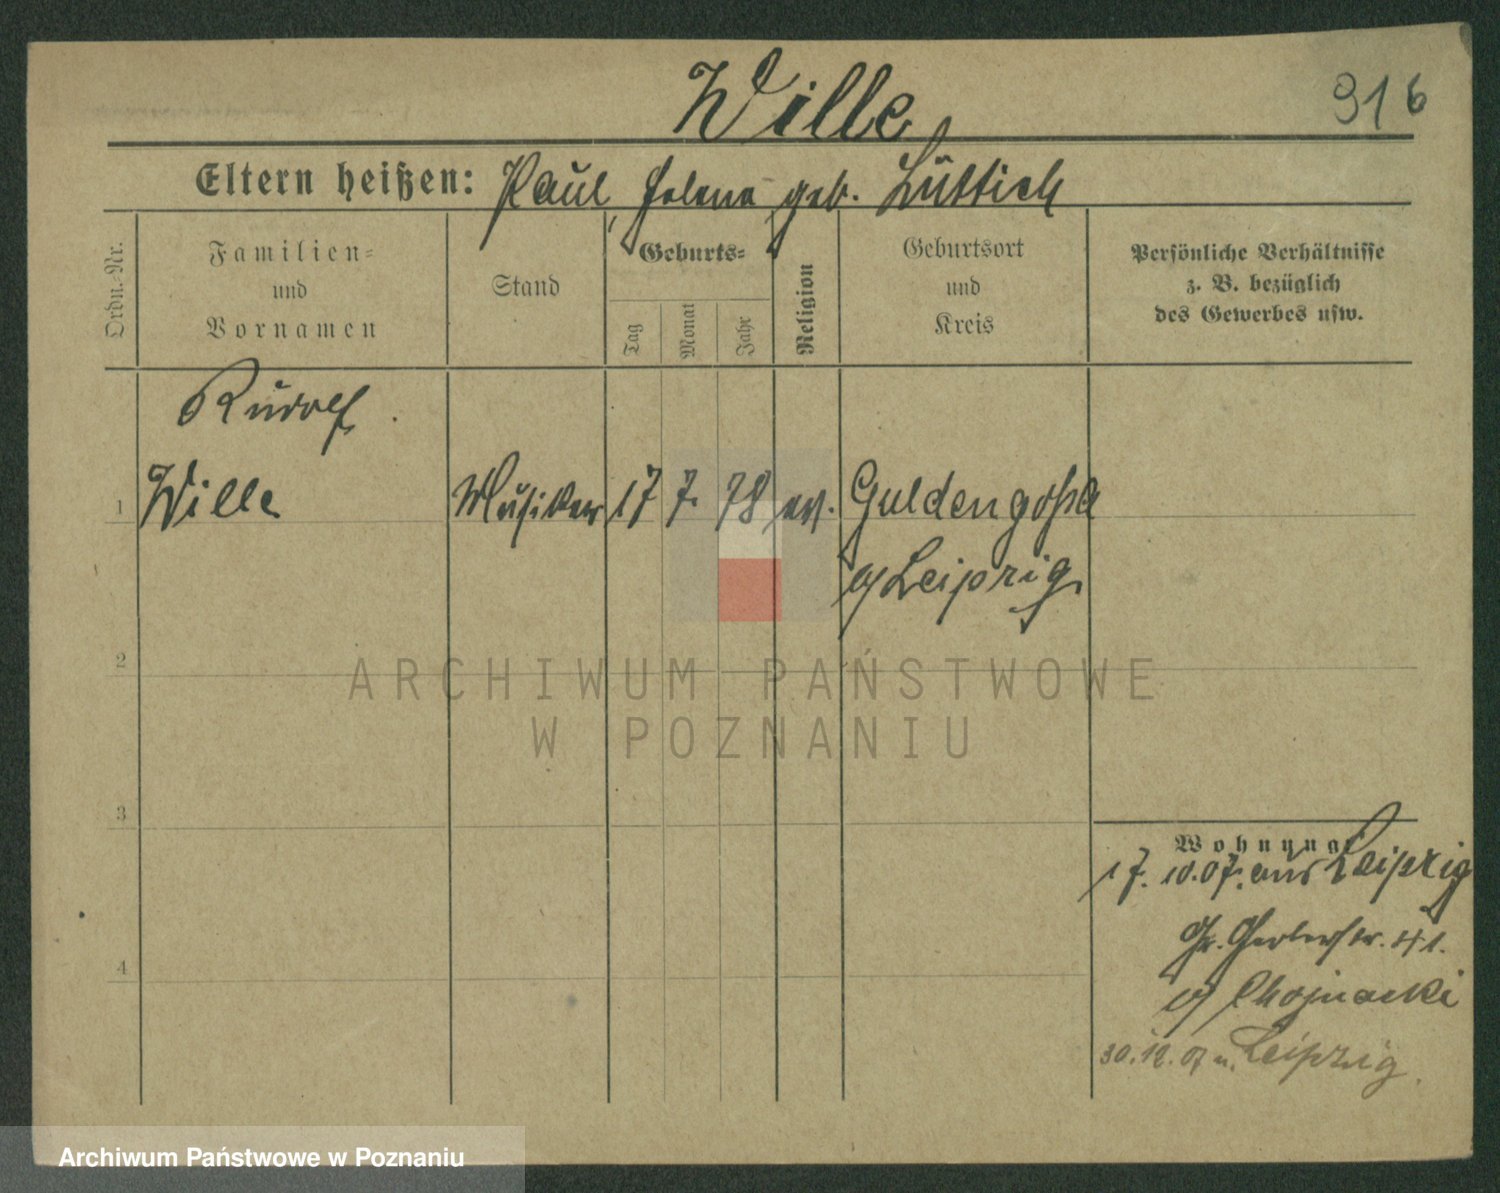 Wille
916
Eltern heißen: Paul, Helena geb. Lüttich
Ordn.-Nr.
Familien-
und
Vornamen
Stand
Geburts-
Tag
Monat
Jahr
Religion
Geburtsort
und
Kreis
Persönliche Verhältnisse
z. B. bezüglich
des Gewerbes usw.
Rudolf
1 Wille Musiker 17 7. 78 ev. Guldengossa
b/Leipzig
2
ARCHIWUM PAŃSTWOWE
W POZNANIU
3
Wohnung:
17. 10. 07. aus Leipzig
Gr. Gerberstr. 41.
b/ Chojnacki
4
30. 12. 07 n. Leipzig.
Archiwum Państwowe w Poznaniu